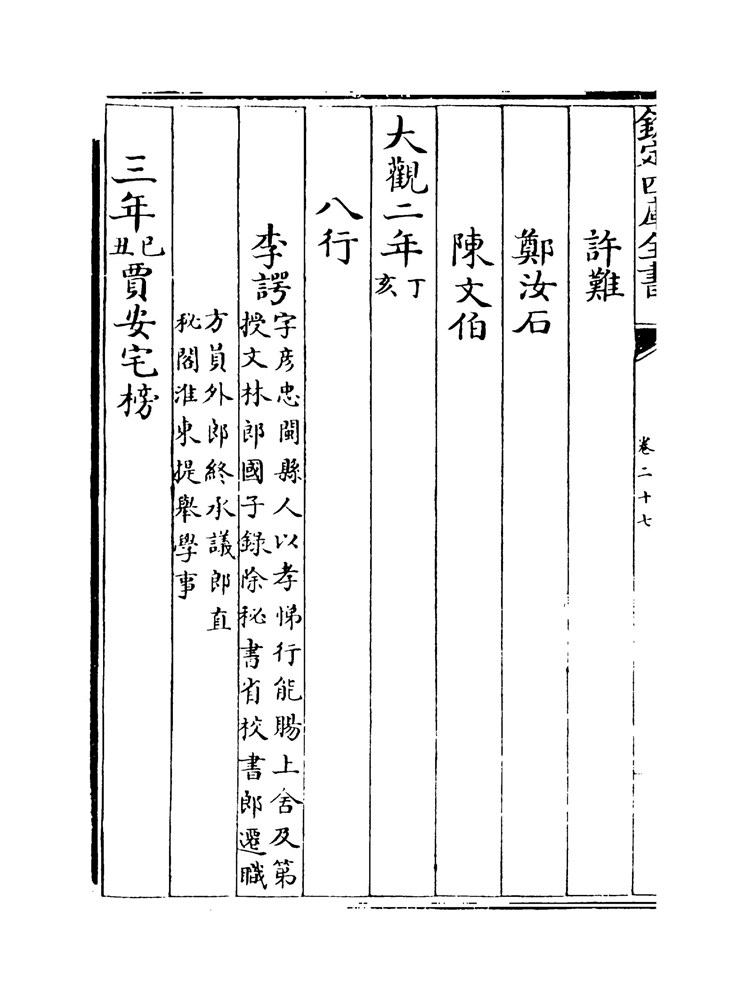 欽定四庫全書
卷二十七
許難
鄭汝石
陳文伯
大觀二年丁亥
八行
李諤字彦忠閩縣人以孝悌行能賜上舍及第
授文林郎國子録除秘書省校書郎遷職
方員外郎終承議郎直
秘閣淮東提舉學事
三年己丑賈安宅榜